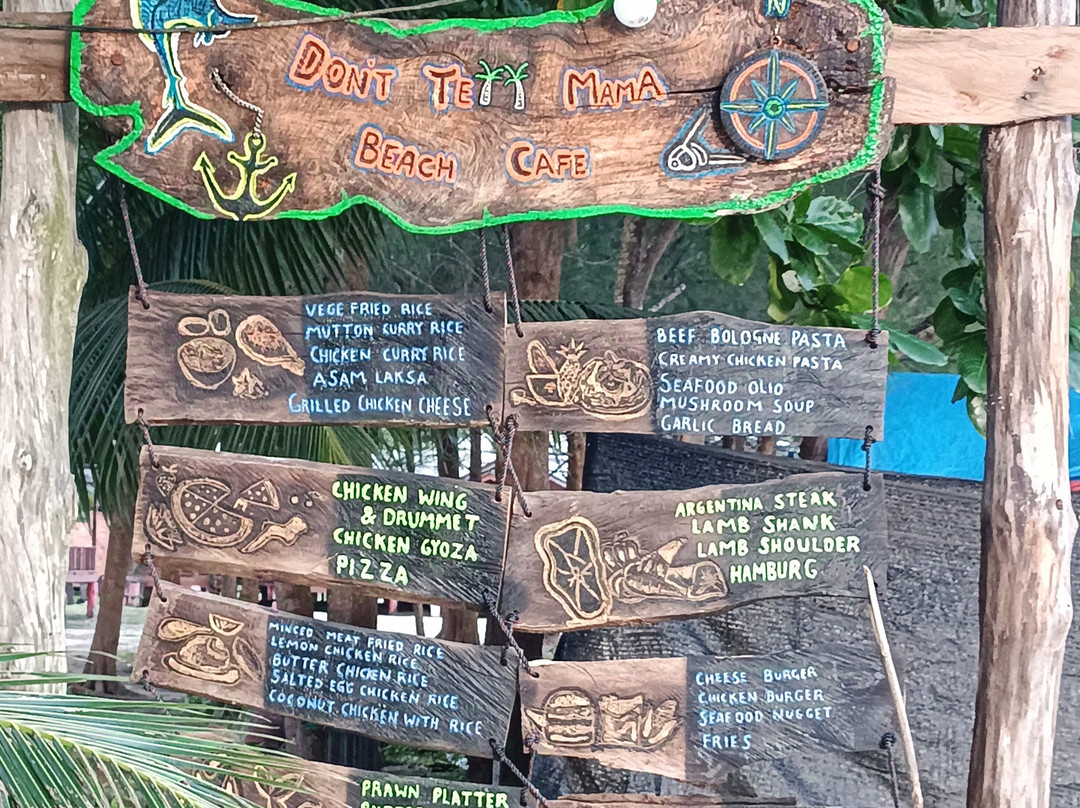 N
DON'T TELL MAMA
BEACH CAFE
VEGE FRIED RICE
MUTTON CURRY RICE
CHICKEN CURRY RICE
ASAM LAKSA
GRILLED CHICKEN CHEESE
BEEF BOLOGNE PASTA
CREAMY CHICKEN PASTA
SEAFOOD OLIO
MUSHROOM SOUP
GARLIC BREAD
CHICKEN WING
& DRUMMET
CHICKEN GYOZA
PIZZA
ARGENTINA STEAK
LAMB SHANK
LAMB SHOULDER
HAMBURG
MINCED MEAT FRIED RICE
LEMON CHICKEN RICE
BUTTER CHICKEN RICE
SALTED EGG CHICKEN RICE
COCONUT CHICKEN WITH RICE
CHEESE BURGER
CHICKEN BURGER
SEAFOOD NUGGET
FRIES
PRAWN PLATTER